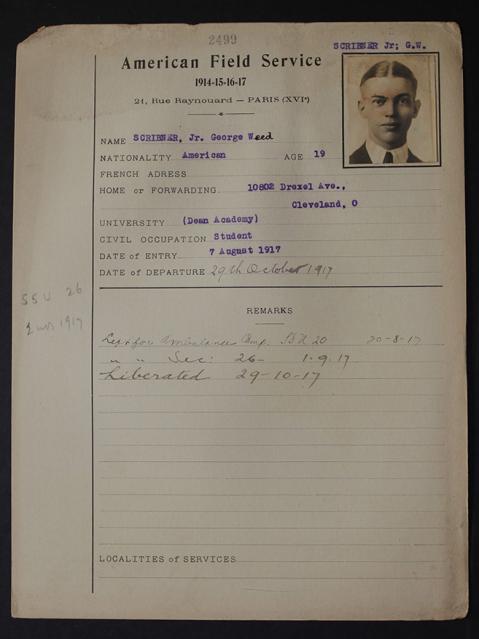 2499
SCRIBNER Jr; G.W.
American Field Service
1914-15-16-17
21, Rue Raynouard — PARIS (XVIe)
NAME SCRIBNER, Jr. George Weed
NATIONALITY American AGE 19
FRENCH ADRESS
HOME or FORWARDING 10802 Drexel Ave.,
Cleveland, O
UNIVERSITY (Dean Academy)
CIVIL OCCUPATION Student
DATE of ENTRY 7 August 1917
DATE of DEPARTURE 29th October 1917
SSU 26
1917
REMARKS
Left for Ambulance Camp. 20 20-8-17
" " Sec: 26- 1.9.17
Liberated 29-10-17
LOCALITIES of SERVICES